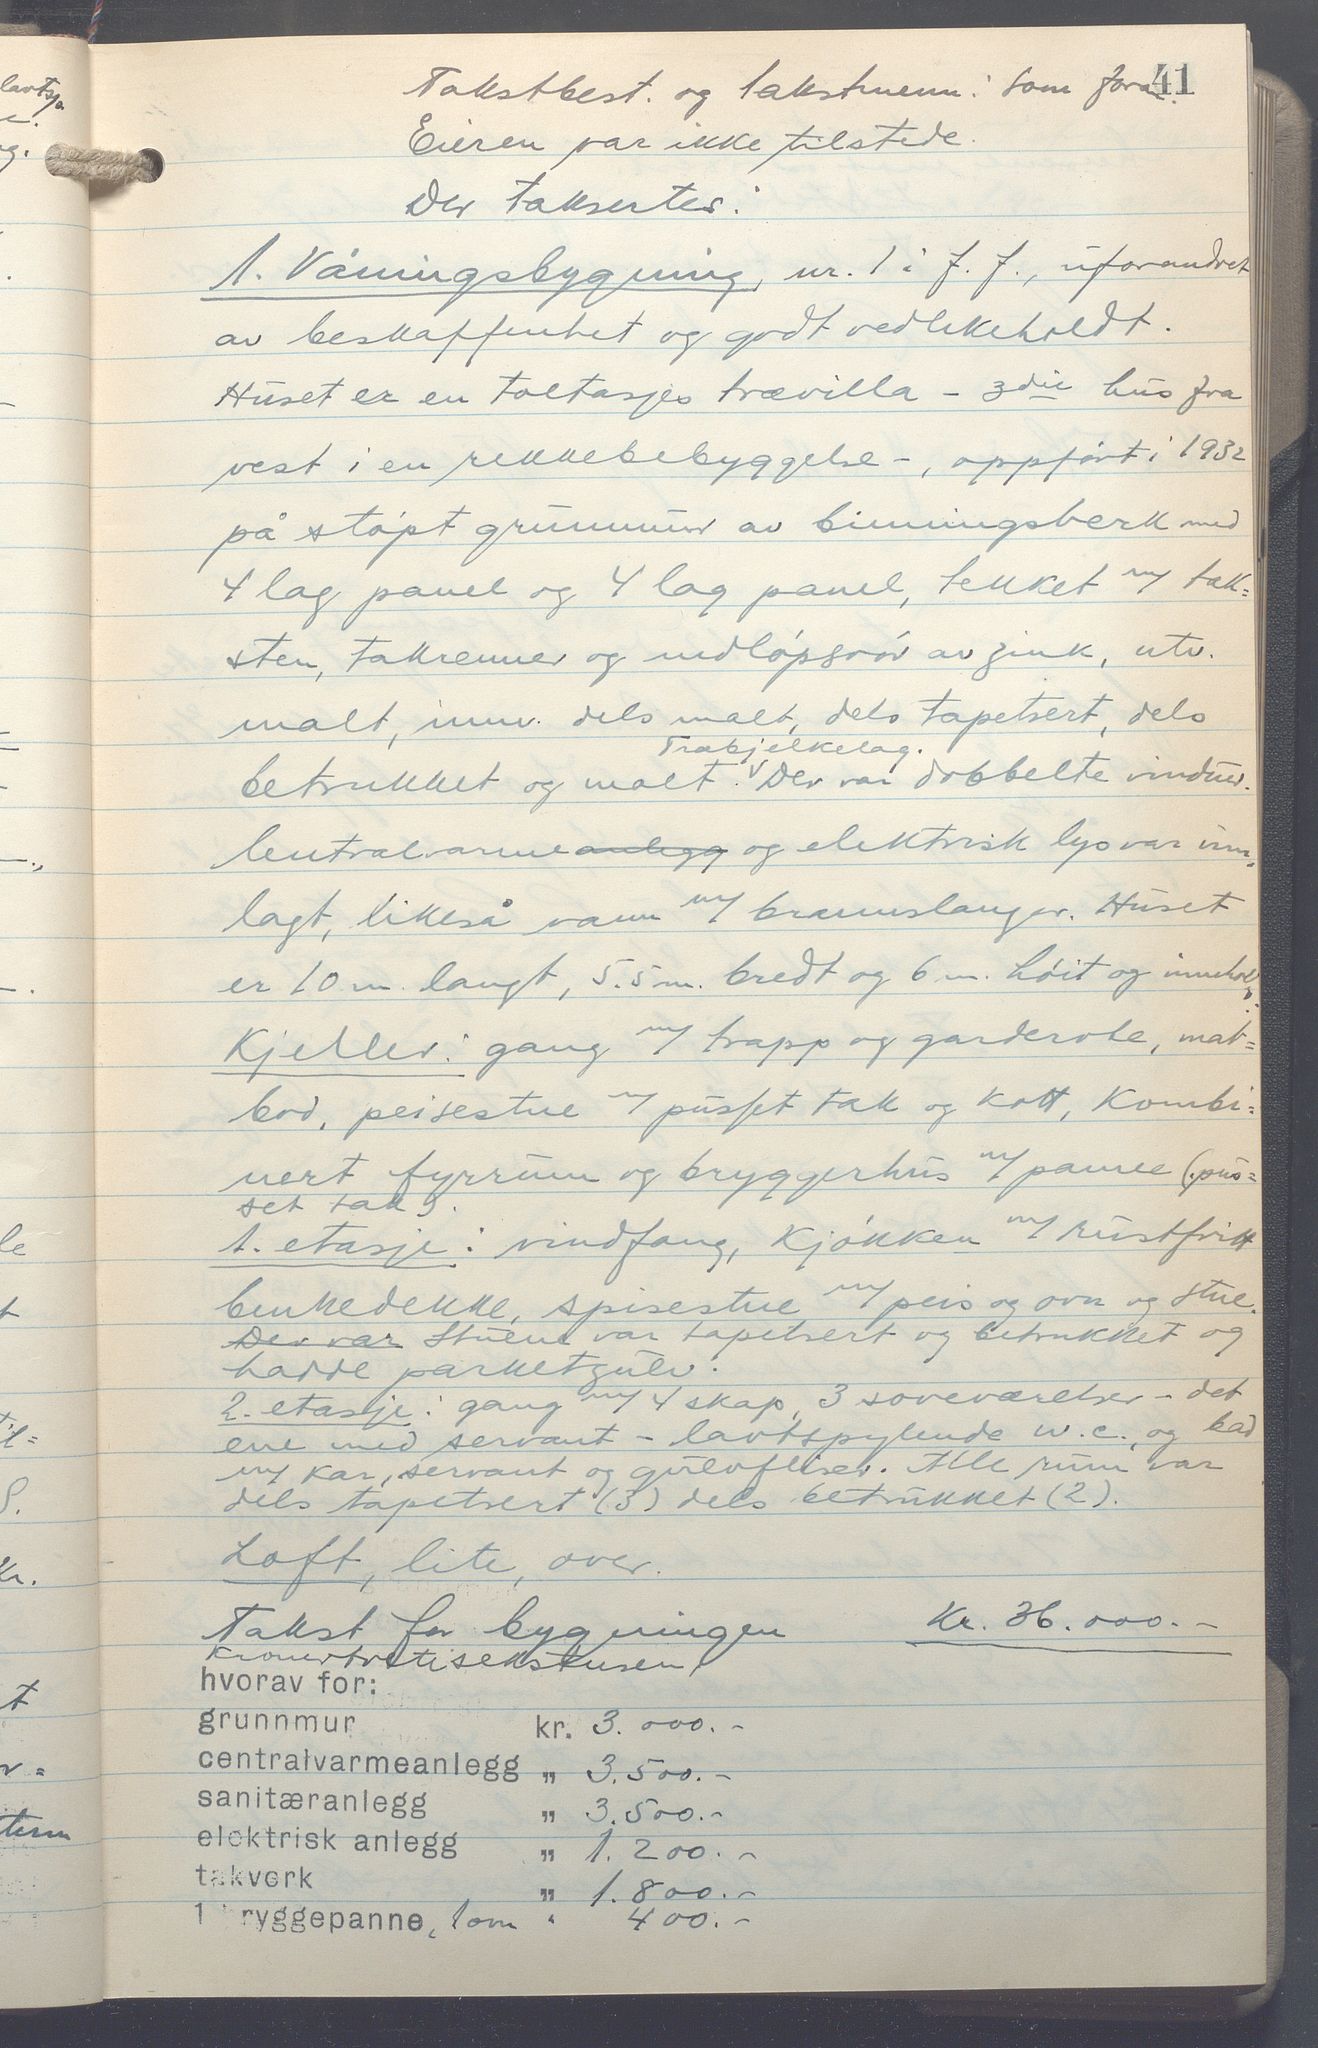 41
Takstbest. og takstmenn: som foran.
Eieren var ikke tilstede.
Der taksertes:
1. Våningsbygning, nr. 1 i f. f., uforandret
av beskaffenhet og godt vedlikeholdt.
Huset er en toetasjes trævilla - 3die hus fra
vest i en rekkebebyggelse -, oppført i 1932
på støpt grunnmur av binningsverk med
4 lag panel og 4 lag papp, tekket m/ tak=
sten, takrenner og nedløpsrør av zink, utv.
malt, innv. dels malt, dels tapetsert, dels
Træbjelkelag.
betrukket og malt. Der var dobbelte vinduer.
Centralvarmeanlegg og elektrisk lys var inn=
lagt, likeså vann m/ brannslanger. Huset
er 10 m. langt, 5.5 m. bredt og 6 m. høit og innehold.:
Kjeller: gang m/ trapp og garderobe, mat=
bod, peisestue m/ pusset tak og kott, kombi=
nert fyrrum og bryggerhus m/ panne (pus=
set tak).
1. etasje: vindfang, kjøkken m/ rustfritt
benkedekke, spisestue m/ peis og ovn og stue.
Der var Stuene var tapetsert og betrukket og
hadde parketgulv.
2. etasje: gang m/ 4 skap, 3 soveværelser - det
ene med servant - lavtspylende w.c., og bad
m/ kar, servant og gulvfliser. Alle rum var
dels tapetsert (3) dels betrukket (2).
Loft, lite, over.
Takst for bygningen Kr. 36.000.-
Kronertrettisekstusen,
hvorav for:
grunnmur kr. 3.000.-
centralvarmeanlegg " 3.500.-
sanitæranlegg " 3.500.-
elektrisk anlegg " 1.200.-
takverk " 1.800.-
1 bryggepanne, 1 ovn " 400.-